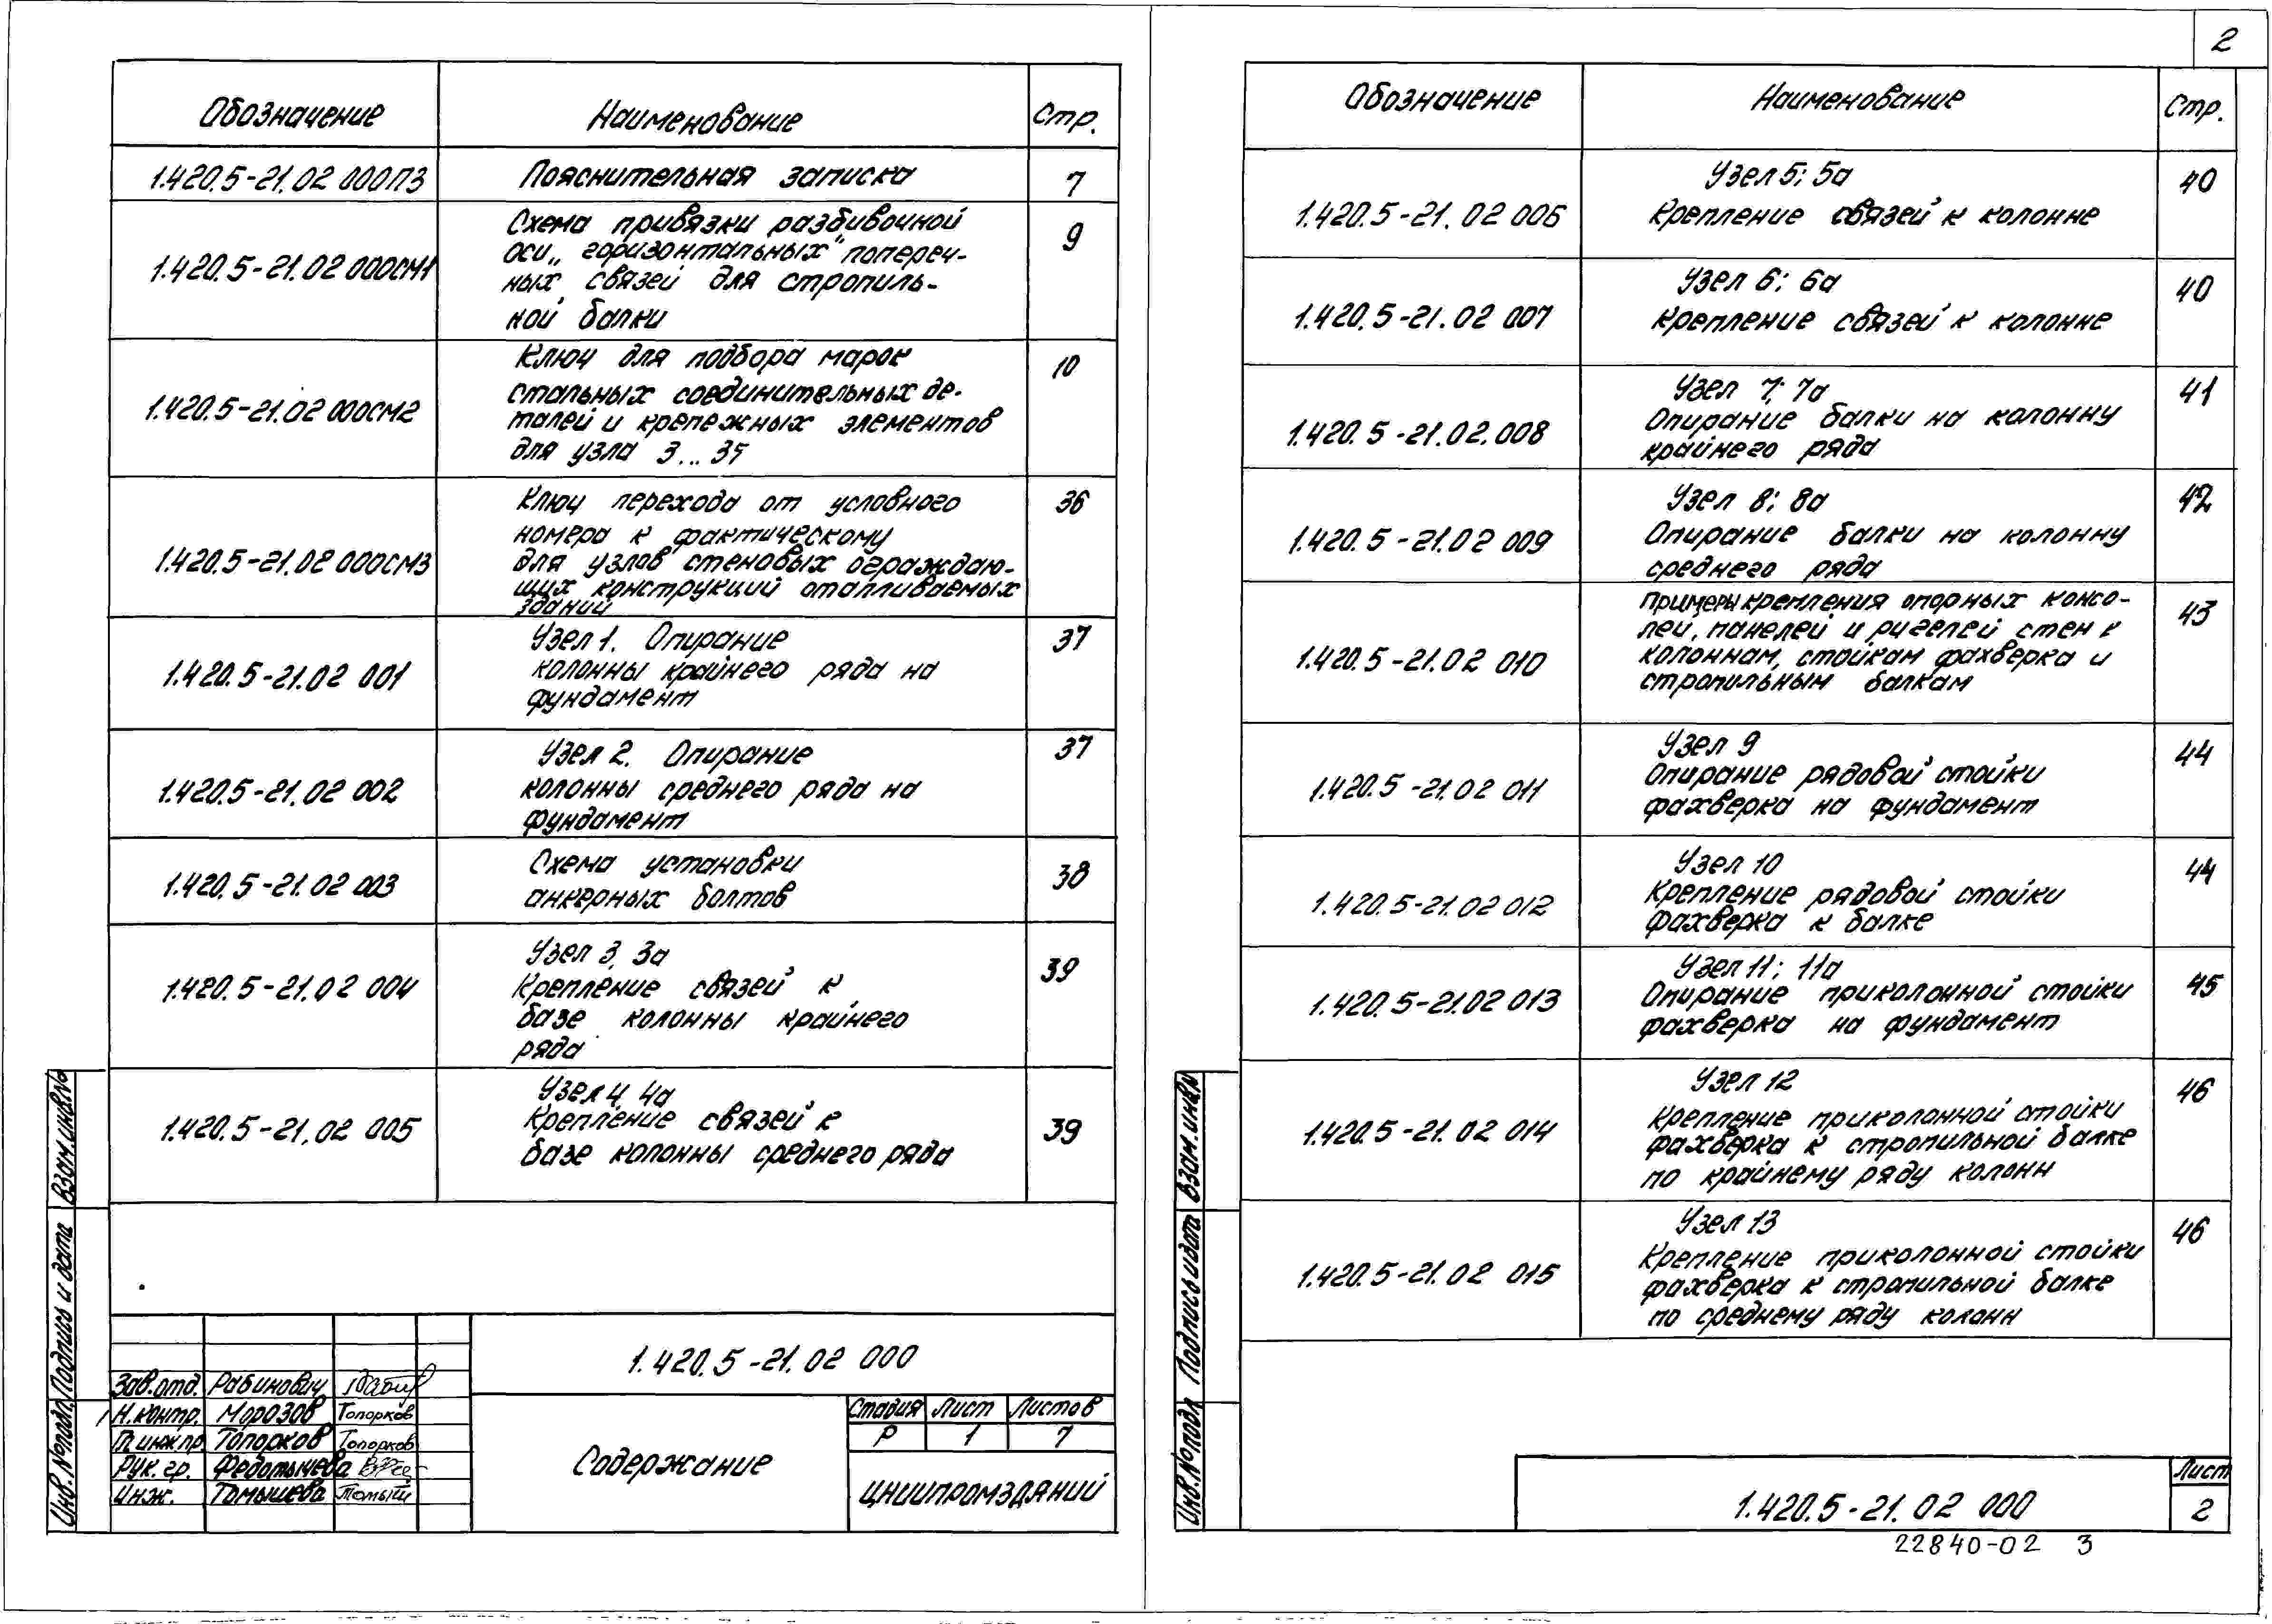 2
Обозначение
Наименование
Стр.
1.420.5-21.02 000ПЗ
Пояснительная записка
7
1.420.5-21.02 000СМ1
Схема привязки разбивочной
оси „горизонтальных" попереч-
ных связей для стропиль-
ной балки
9
1.420.5-21.02 000СМ2
Ключ для подбора марок
стальных соединительных де-
талей и крепежных элементов
для узла 3...35
10
1.420.5-21.02 000СМ3
Ключ перехода от условного
номера к фактическому
для узлов стеновых ограждаю-
щих конструкций отапливаемых
зданий
36
1.420.5-21.02 001
Узел 1. Опирание
колонны крайнего ряда на
фундамент
37
1.420.5-21.02 002
Узел 2. Опирание
колонны среднего ряда на
фундамент
37
1.420.5-21.02 003
Схема установки
анкерных болтов
38
1.420.5-21.02 004
Узел 3, 3а
Крепление связей к
базе колонны крайнего
ряда
39
1.420.5-21.02 005
Узел 4, 4а
Крепление связей к
базе колонны среднего ряда
39
Взам.инв.№
Подпись и дата
Инв.№подл.
1.420.5-21.02 000
Зав.отд. Рабинович
Н.контр. Морозов Топорков
Гл.инж.пр Топорков Топорков
Рук.гр. Федотычева
Инж. Томышева
Содержание
Стадия Лист Листов
Р 1 7
ЦНИИПРОМЗДАНИЙ
Обозначение
Наименование
Стр.
1.420.5-21.02 006
Узел 5; 5а
Крепление связей к колонне
40
1.420.5-21.02 007
Узел 6; 6а
Крепление связей к колонне
40
1.420.5-21.02.008
Узел 7; 7а
Опирание балки на колонну
крайнего ряда
41
1.420.5-21.02 009
Узел 8; 8а
Опирание балки на колонну
среднего ряда
42
1.420.5-21.02 010
Примеры крепления опорных консо-
лей, панелей и ригелей стен к
колоннам, стойкам фахверка и
стропильным балкам
43
1.420.5-21.02 011
Узел 9
Опирание рядовой стойки
фахверка на фундамент
44
1.420.5-21.02 012
Узел 10
Крепление рядовой стойки
фахверка к балке
44
1.420.5-21.02 013
Узел 11; 11а
Опирание приколонной стойки
фахверка на фундамент
45
1.420.5-21.02 014
Узел 12
Крепление приколонной стойки
фахверка к стропильной балке
по крайнему ряду колонн
46
1.420.5-21.02 015
Узел 13
Крепление приколонной стойки
фахверка к стропильной балке
по среднему ряду колонн
46
Взам.инв.№
Подпись и дата
Инв.№подл
1.420.5-21.02 000
Лист
2
22840-02 3